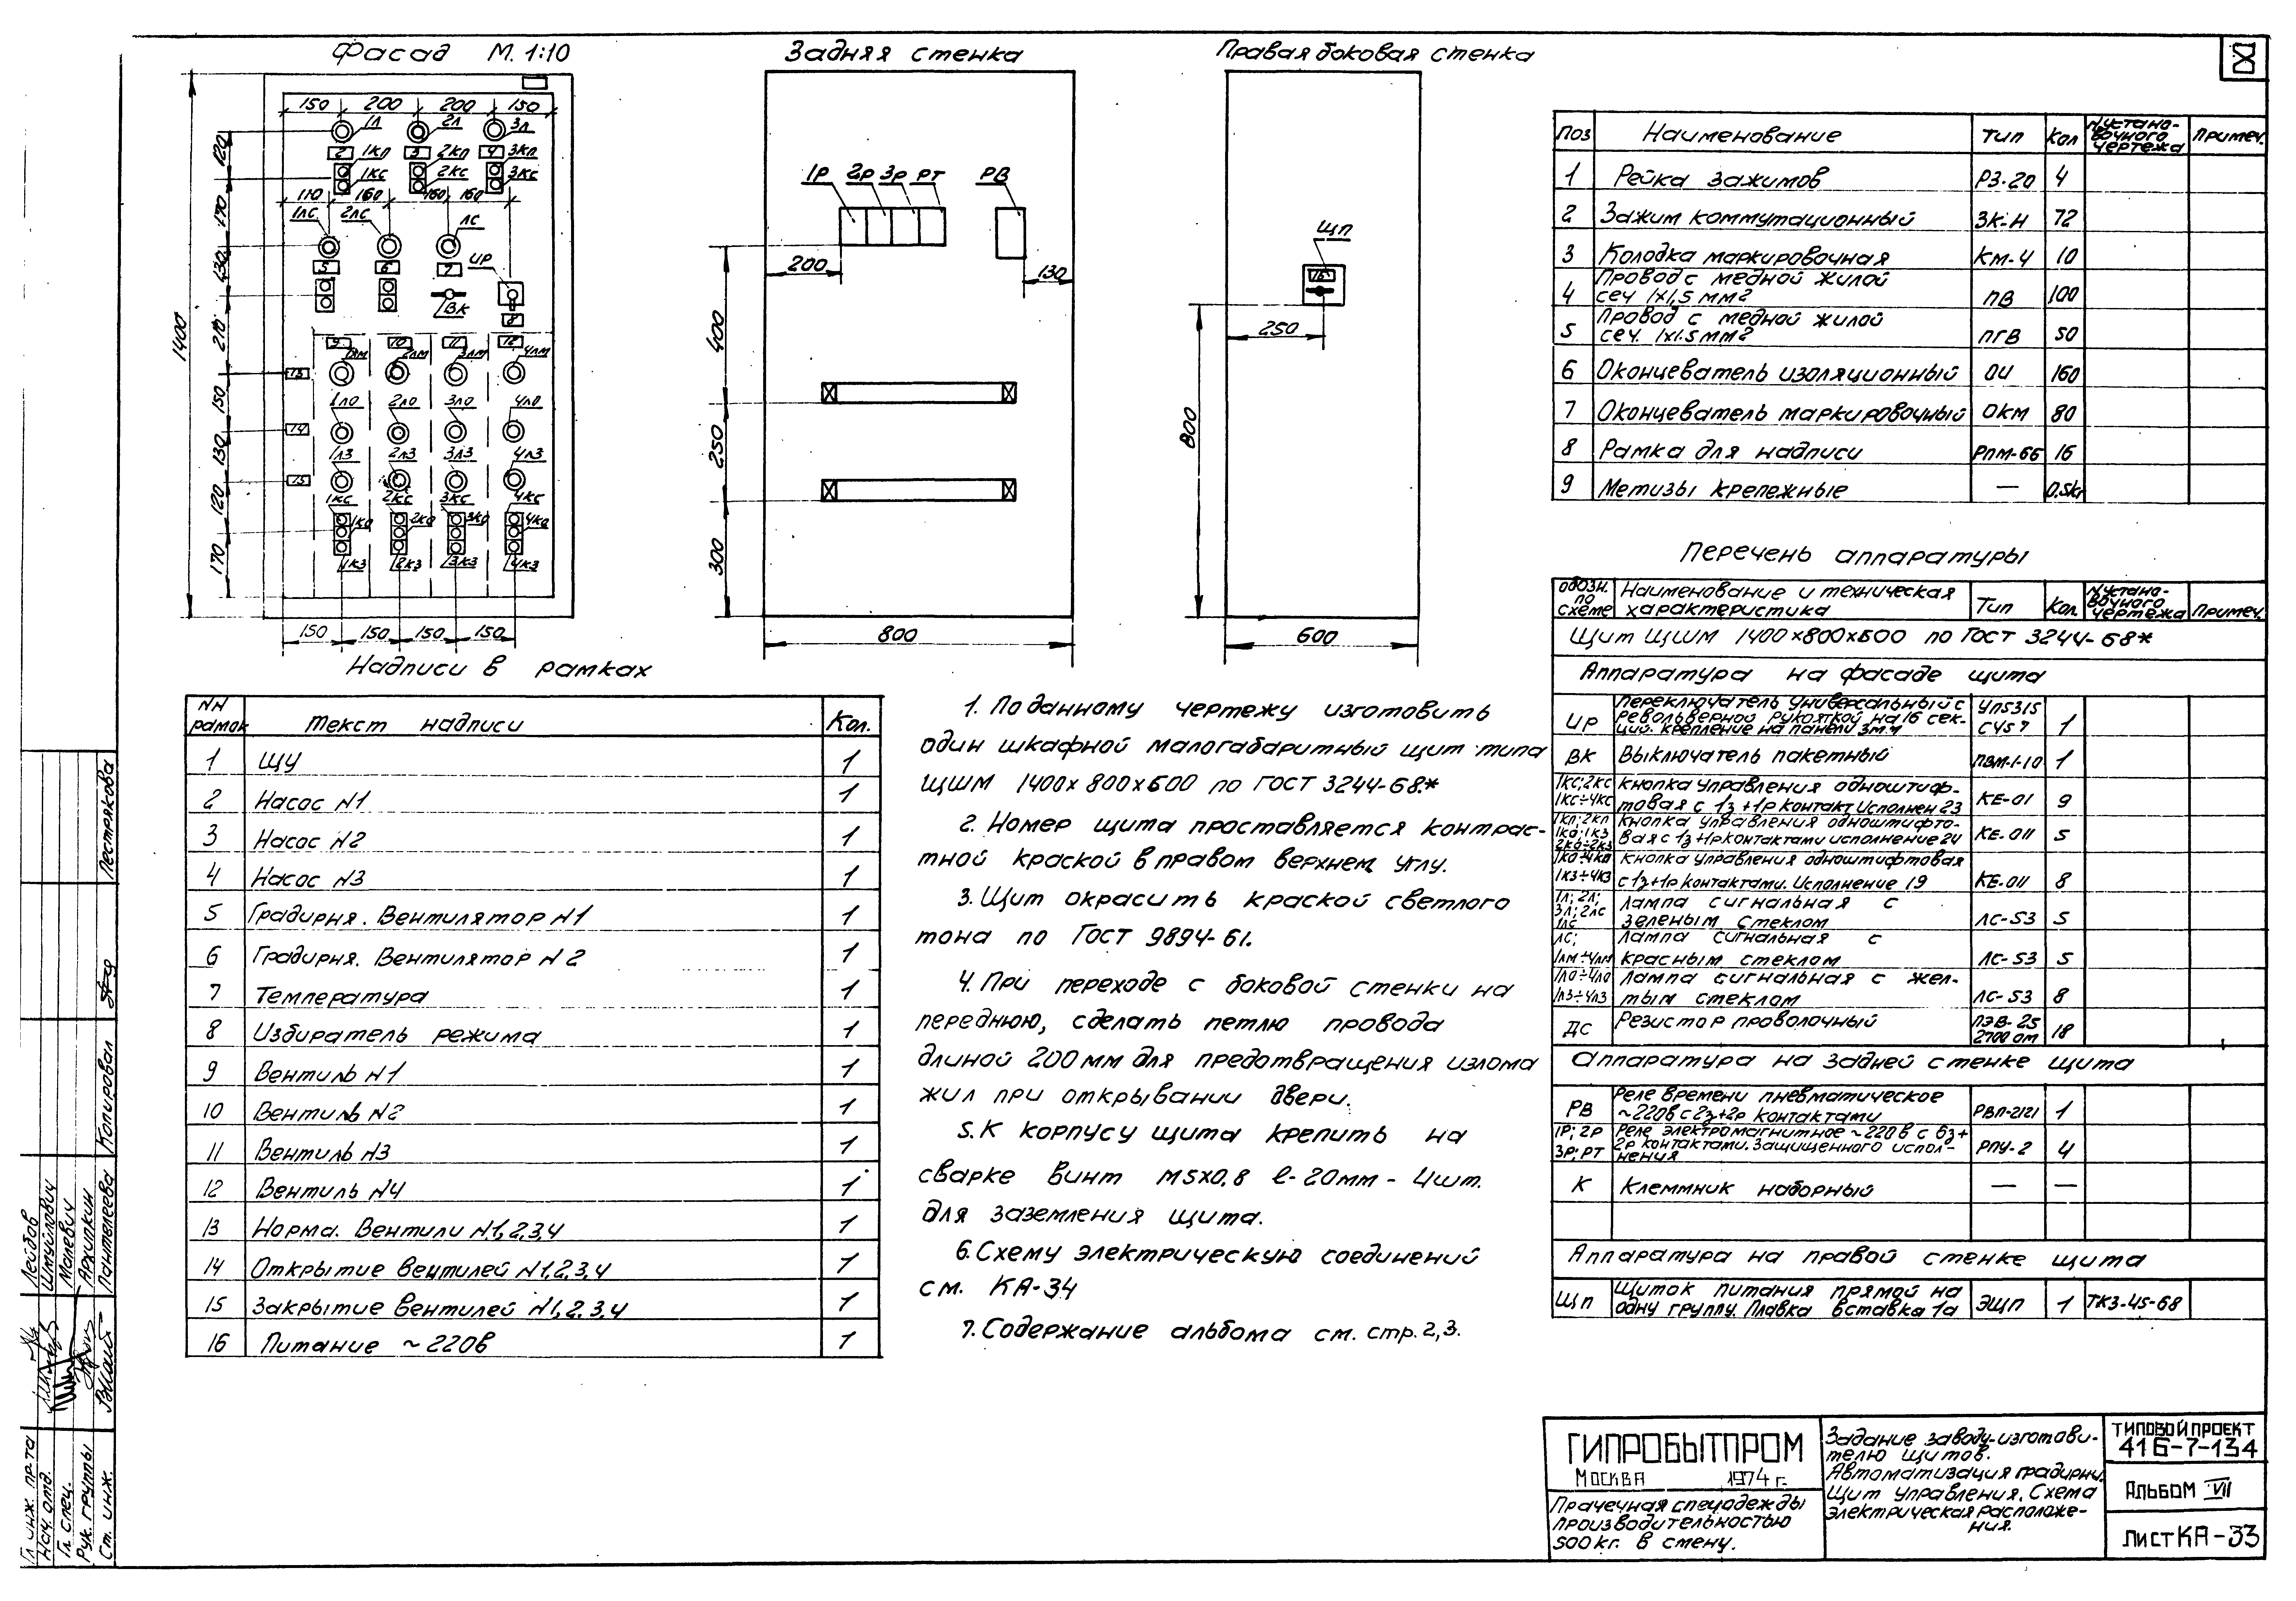 Фасад М. 1:10
Задняя стенка
Правая боковая стенка
150 200 200 150
1Л 2Л 3Л
2 3 4
1КП 2КП 3КП
1КС 2КС 3КС
110 160 160 160
1ЛС 2ЛС ЛС
5 6 7
ИР
ВК
8
9 10 11 12
1ЛМ 2ЛМ 3ЛМ 4ЛМ
13
1ЛО 2ЛО 3ЛО 4ЛО
14
1ЛЗ 2ЛЗ 3ЛЗ 4ЛЗ
15
1КС 2КС 3КС 4КС
1КО 2КО 3КО 4КО
1КЗ 2КЗ 3КЗ 4КЗ
150 150 150 150
1400
120
170
130
210
150
130
120
170
1Р 2Р 3Р РТ РВ
200
130
400
250
300
800
ЩП
16
250
800
600
Поз Наименование Тип Кол N установочного чертежа Примеч.
1 Рейка зажимов РЗ-20 4
2 Зажим коммутационный ЗК-Н 72
3 Колодка маркировочная КМ-4 10
4 Провод с медной жилой сеч 1х1,5 мм2 ПВ 100
5 Провод с медной жилой сеч. 1х1.5мм2 ПГВ 50
6 Оконцеватель изоляционный ОИ 160
7 Оконцеватель маркировочный ОКМ 80
8 Рамка для надписи РПМ-66 16
9 Метизы крепежные — 0.5кг
Перечень аппаратуры
Обозн. по схеме Наименование и техническая характеристика Тип Кол. N установочного чертежа Примеч.
Щит ЩШМ 1400х800х600 по ГОСТ 3244-68*
Аппаратура на фасаде щита
ИР Переключатель универсальный с револьверной рукояткой на 16 секций. крепление на панели 3м.4 УП5315 С457 1
ВК Выключатель пакетный ПВМ-1-10 1
1КС;2КС 1КС÷4КС Кнопка управления одноштифтовая с 1з+1р контакт Исполнен 23 КЕ-01 9
1КП; 2КП 1КО;1КЗ 2КО÷2КЗ Кнопка управления одноштифтовая с 1з+1р контактами исполнение 24 КЕ-011 5
1КО÷4КО 1КЗ÷4КЗ Кнопка управления одноштифтовая с 1з+1р контактами. Исполнение 19 КЕ-011 8
1Л; 2Л; 3Л; 2ЛС 1ЛС Лампа сигнальная с зеленым стеклом ЛС-53 5
ЛС; 1ЛМ÷4ЛМ Лампа сигнальная с красным стеклом ЛС-53 5
1ЛО÷4ЛО 1ЛЗ÷4ЛЗ Лампа сигнальная с желтым стеклом ЛС-53 8
ДС Резистор проволочный ПЭВ-25 2700 ом 18
Аппаратура на задней стенке щита
РВ Реле времени пневматическое ~220в с 2з+2р контактами РВП-2121 1
1Р; 2Р 3Р; РТ Реле электромагнитное ~220в с 6з+2р контактами. Защищенного исполнения РПУ-2 4
К Клеммник наборный — —
Аппаратура на правой стенке щита
ЩП Щиток питания прямой на одну группу. Плавка вставка 1а ЭЩП 1 ТКЗ-45-68
Надписи в рамках
NN рамок Текст надписи Кол.
1 ЩУ 1
2 Насос N1 1
3 Насос N2 1
4 Насос N3 1
5 Градирня. Вентилятор N1 1
6 Градирня. Вентилятор N2 1
7 Температура 1
8 Избиратель режима 1
9 Вентиль N1 1
10 Вентиль N2 1
11 Вентиль N3 1
12 Вентиль N4 1
13 Норма. Вентили N1,2,3,4 1
14 Открытие вентилей N1,2,3,4 1
15 Закрытие вентилей N1,2,3,4 1
16 Питание ~220в 1
1. По данному чертежу изготовить
один шкафной малогабаритный щит типа
ЩШМ 1400х800х600 по ГОСТ 3244-68.*
2. Номер щита проставляется контрас-
тной краской в правом верхнем углу.
3. Щит окрасить краской светлого
тона по ГОСТ 9894-61.
4. При переходе с боковой стенки на
переднюю, сделать петлю провода
длиной 200мм для предотвращения излома
жил при открывании двери.
5. К корпусу щита крепить на
сварке винт М5х0,8 l-20мм - 4шт.
для заземления щита.
6. Схему электрическую соединений
см. КА-34
7. Содержание альбома см. стр. 2,3.
ГИПРОБЫТПРОМ
Москва 1974 г.
Прачечная спецодежды
производительностью
500кг. в смену.
Задание заводу-изготови-
телю щитов.
Автоматизация градирни.
Щит управления. Схема
электрическая расположе-
ния.
ТИПОВОЙ ПРОЕКТ
416-7-134
Альбом VII
Лист КА-33
Гл. инж. пр-та Лейбов
Нач. отд. Шмуйлович
Гл. спец. Малевич
Рук. группы Архипкин
Ст. инж. Пантелеева
Копировал Пестрякова